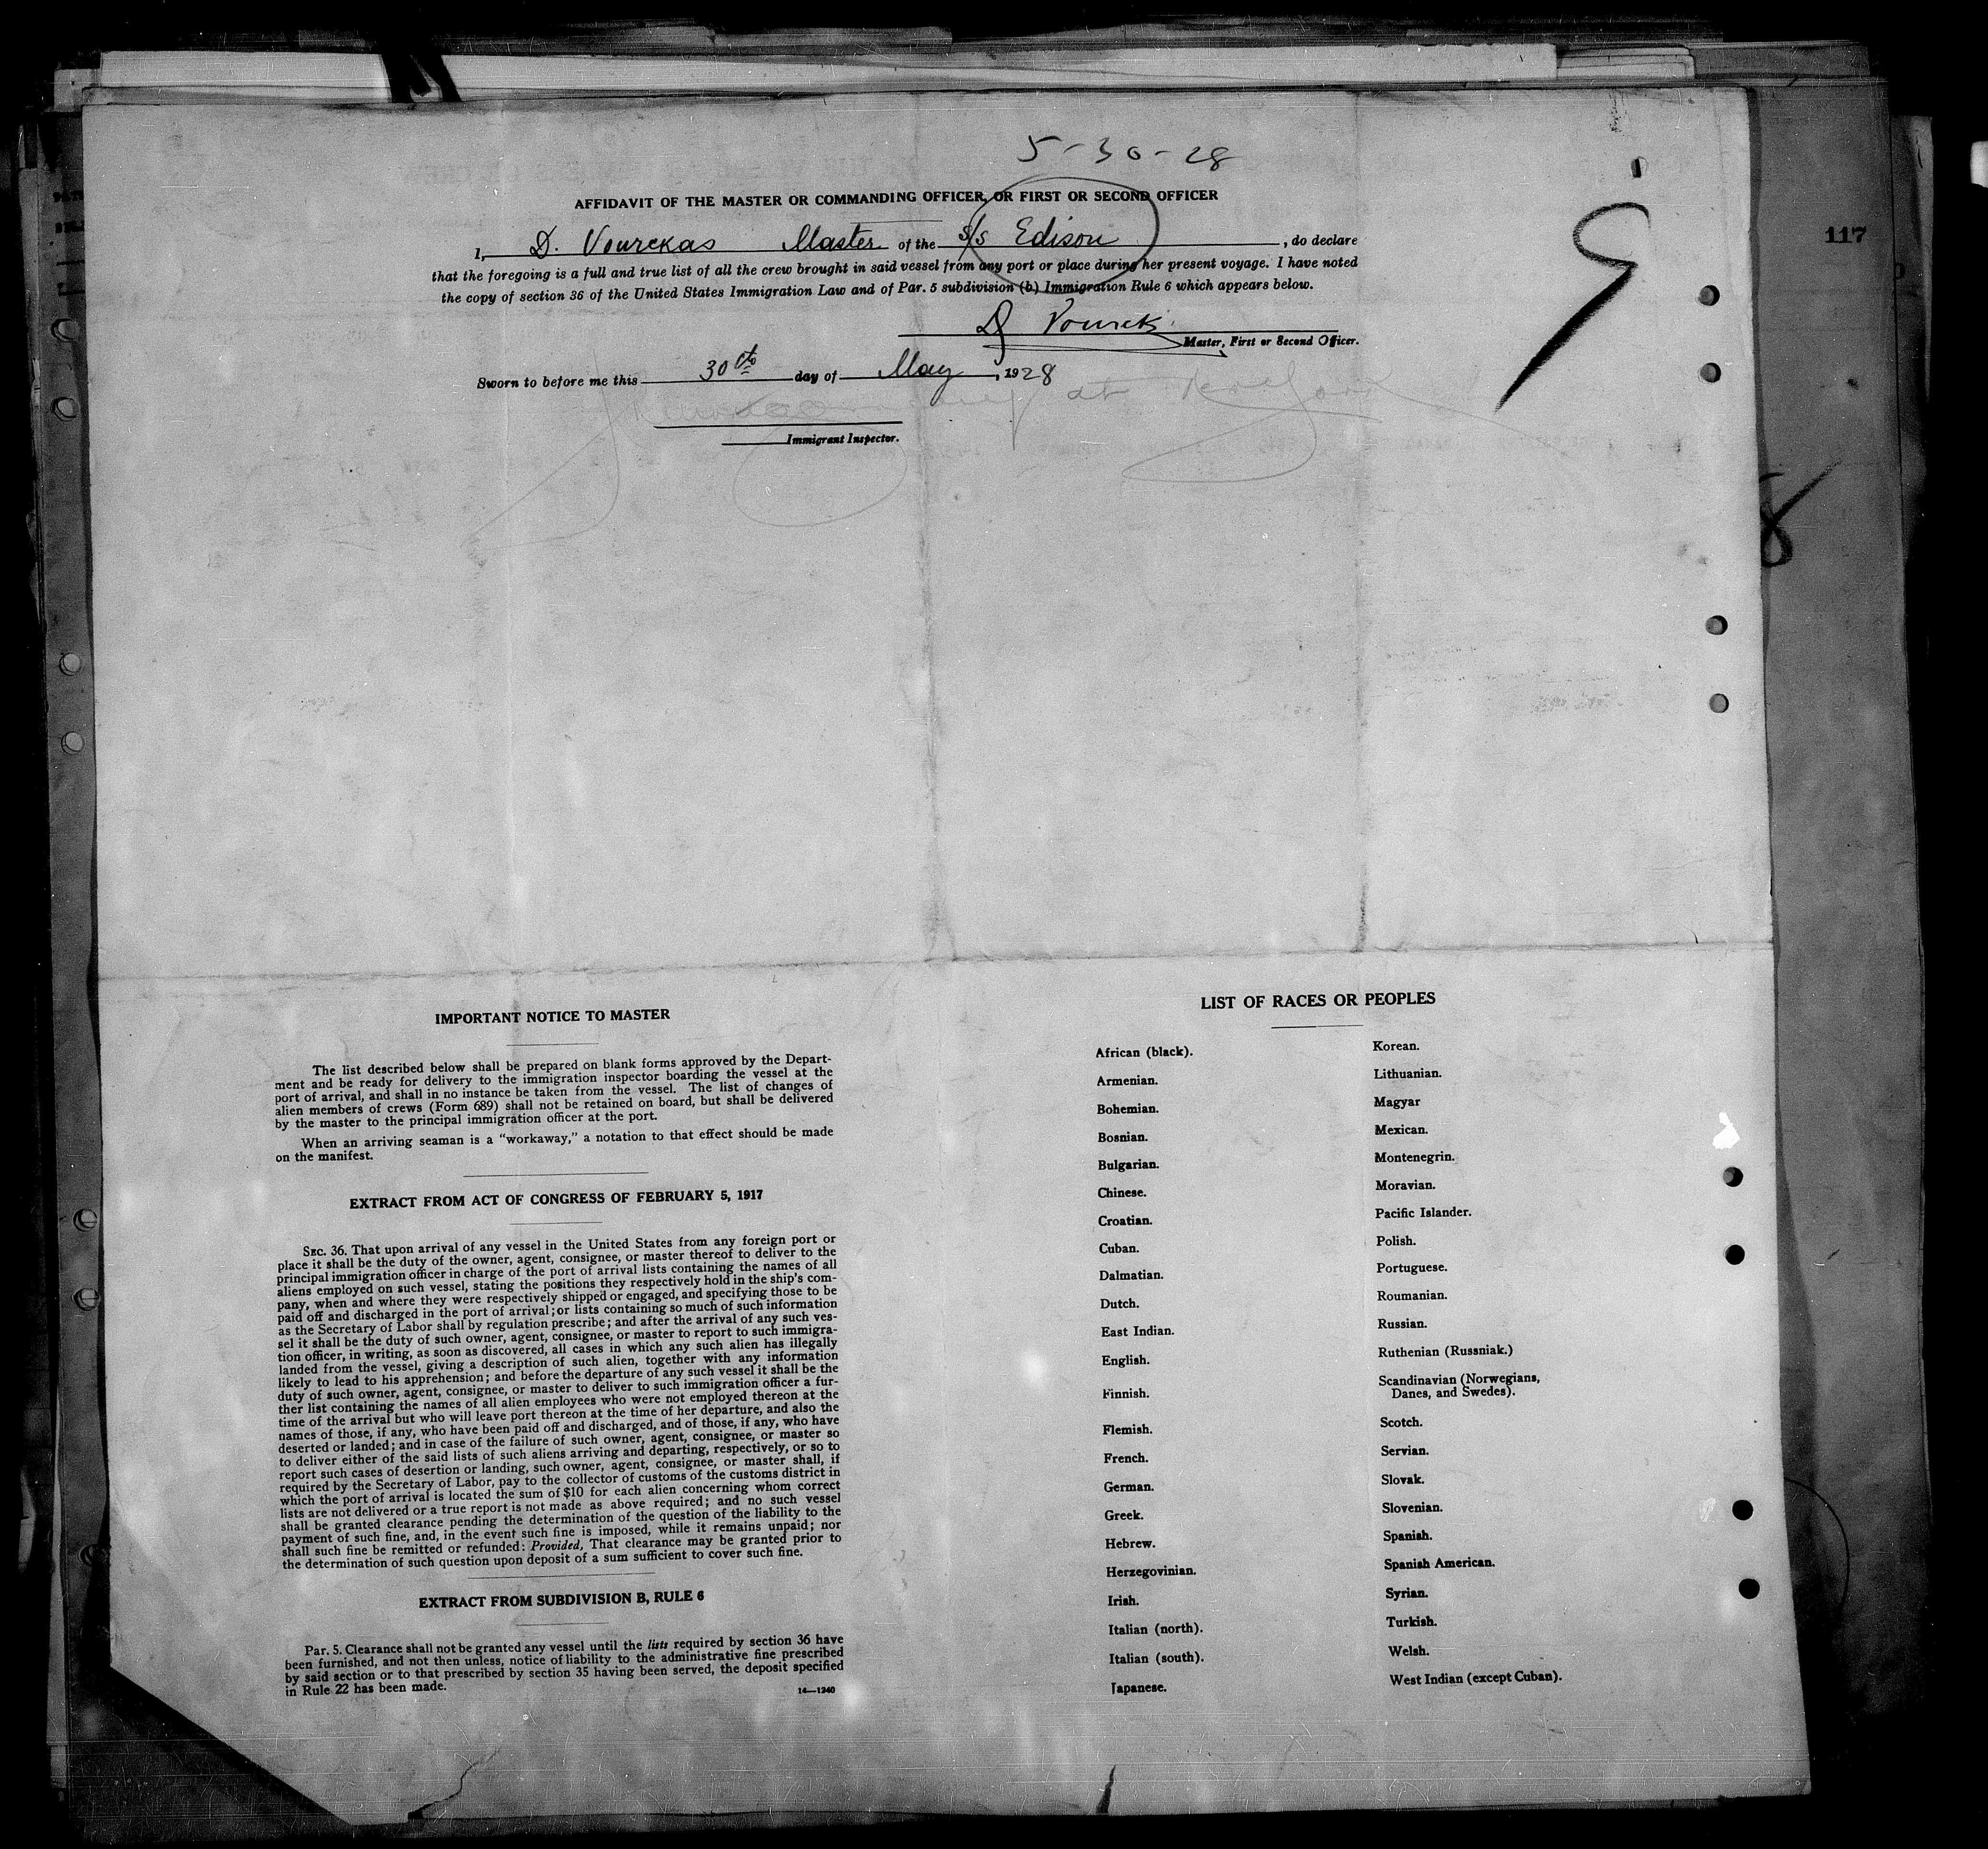 5-30-28
AFFIDAVIT OF THE MASTER OR COMMANDING OFFICER, OR FIRST OR SECOND OFFICER
I, D. Vourekas Master of the S/S Edison, do declare
that the foregoing is a full and true list of all the crew brought in said vessel from any port or place during her present voyage. I have noted
the copy of section 36 of the United States Immigration Law and of Par. 5 subdivision (b) Immigration Rule 6 which appears below.
Master, First or Second Officer.
Sworn to before me this 30th day of May, 1928
at New York
Immigrant Inspector.
117
9
8
IMPORTANT NOTICE TO MASTER
The list described below shall be prepared on blank forms approved by the Depart-
ment and be ready for delivery to the immigration inspector boarding the vessel at the
port of arrival, and shall in no instance be taken from the vessel. The list of changes of
alien members of crews (Form 689) shall not be retained on board, but shall be delivered
by the master to the principal immigration officer at the port.
When an arriving seaman is a "workaway," a notation to that effect should be made
on the manifest.
EXTRACT FROM ACT OF CONGRESS OF FEBRUARY 5, 1917
SEC. 36. That upon arrival of any vessel in the United States from any foreign port or
place it shall be the duty of the owner, agent, consignee, or master thereof to deliver to the
principal immigration officer in charge of the port of arrival lists containing the names of all
aliens employed on such vessel, stating the positions they respectively hold in the ship's com-
pany, when and where they were respectively shipped or engaged, and specifying those to be
paid off and discharged in the port of arrival; or lists containing so much of such information
as the Secretary of Labor shall by regulation prescribe; and after the arrival of any such ves-
sel it shall be the duty of such owner, agent, consignee, or master to report to such immigra-
tion officer, in writing, as soon as discovered, all cases in which any such alien has illegally
landed from the vessel, giving a description of such alien, together with any information
likely to lead to his apprehension; and before the departure of any such vessel it shall be the
duty of such owner, agent, consignee, or master to deliver to such immigration officer a fur-
ther list containing the names of all alien employees who were not employed thereon at the
time of the arrival but who will leave port thereon at the time of her departure, and also the
names of those, if any, who have been paid off and discharged, and of those, if any, who have
deserted or landed; and in case of the failure of such owner, agent, consignee, or master so
to deliver either of the said lists of such aliens arriving and departing, respectively, or so to
report such cases of desertion or landing, such owner, agent, consignee, or master shall, if
required by the Secretary of Labor, pay to the collector of customs of the customs district in
which the port of arrival is located the sum of $10 for each alien concerning whom correct
lists are not delivered or a true report is not made as above required; and no such vessel
shall be granted clearance pending the determination of the question of the liability to the
payment of such fine, and, in the event such fine is imposed, while it remains unpaid; nor
shall such fine be remitted or refunded: Provided, That clearance may be granted prior to
the determination of such question upon deposit of a sum sufficient to cover such fine.
EXTRACT FROM SUBDIVISION B, RULE 6
Par. 5. Clearance shall not be granted any vessel until the lists required by section 36 have
been furnished, and not then unless, notice of liability to the administrative fine prescribed
by said section or to that prescribed by section 35 having been served, the deposit specified
in Rule 22 has been made.
14—1240
LIST OF RACES OR PEOPLES
African (black).
Armenian.
Bohemian.
Bosnian.
Bulgarian.
Chinese.
Croatian.
Cuban.
Dalmatian.
Dutch.
East Indian.
English.
Finnish.
Flemish.
French.
German.
Greek.
Hebrew.
Herzegovinian.
Irish.
Italian (north).
Italian (south).
Japanese.
Korean.
Lithuanian.
Magyar
Mexican.
Montenegrin.
Moravian.
Pacific Islander.
Polish.
Portuguese.
Roumanian.
Russian.
Ruthenian (Russniak.)
Scandinavian (Norwegians,
Danes, and Swedes).
Scotch.
Servian.
Slovak.
Slovenian.
Spanish.
Spanish American.
Syrian.
Turkish.
Welsh.
West Indian (except Cuban).